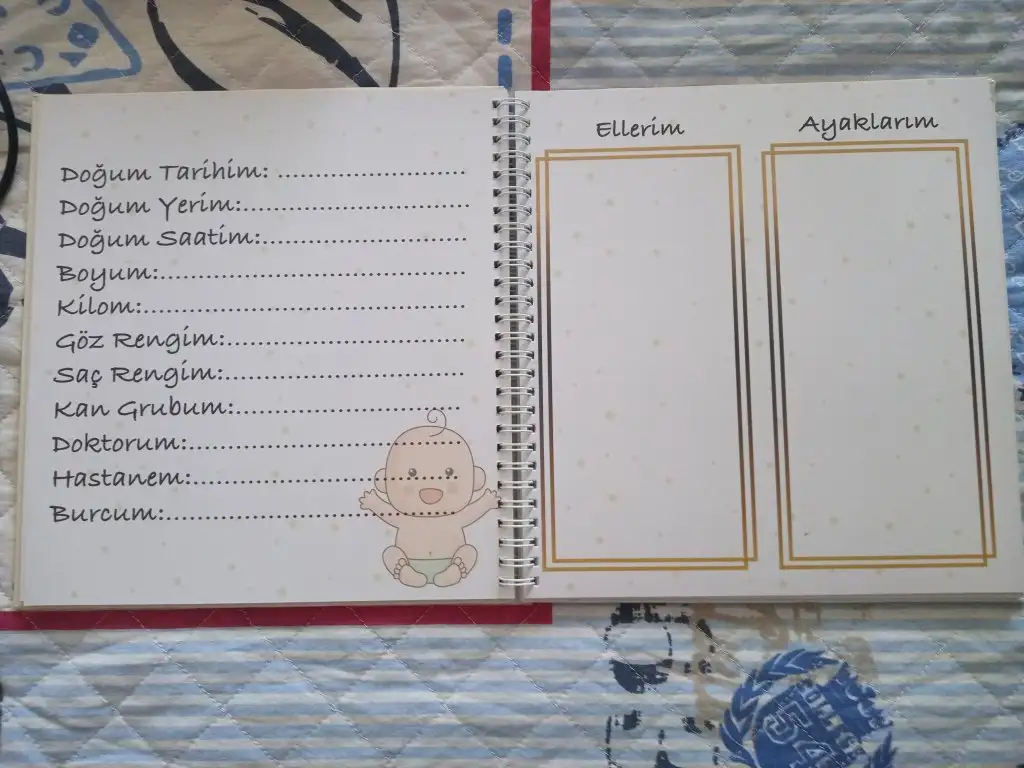 Doğum Tarihim: ..............................
Doğum Yerim:....................................
Doğum Saatim:.................................
Boyum:................................................
Kilom:...................................................
Göz Rengim:......................................
Saç Rengim:......................................
Kan Grubum:....................................
Doktorum:...........................................
Hastanem:..........................................
Burcum:..............................................
Ellerim
Ayaklarım
54